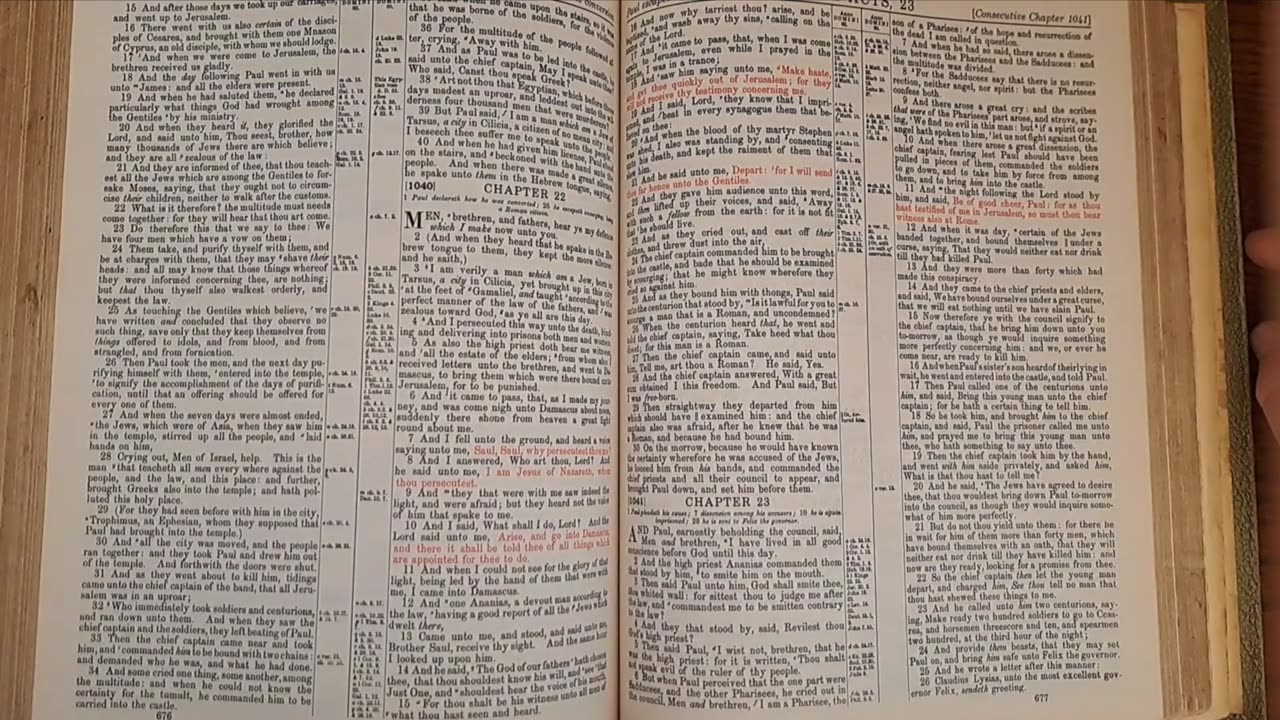 15 And after those days we took up our carriages,
and went up to Jerusalem.
16 There went with us also certain of the disci-
ples of Cesarea, and brought with them one Mnason
of Cyprus, an old disciple, with whom we should lodge.
17 And when we were come to Jerusalem, the
brethren received us gladly.
18 And the day following Paul went in with us
unto James: and all the elders were present.
19 And when he had saluted them, he declared
particularly what things God had wrought among
the Gentiles by his ministry.
20 And when they heard it, they glorified the
Lord, and said unto him, Thou seest, brother, how
many thousands of Jews there are which believe;
and they are all zealous of the law:
21 And they are informed of thee, that thou teach-
est all the Jews which are among the Gentiles to for-
sake Moses, saying, that they ought not to circum-
cise their children, neither to walk after the customs.
22 What is it therefore? the multitude must needs
come together: for they will hear that thou art come.
23 Do therefore this that we say to thee: We
have four men which have a vow on them;
24 Them take, and purify thyself with them, and
be at charges with them, that they may shave their
heads: and all may know that those things whereof
they were informed concerning thee, are nothing;
but that thou thyself also walkest orderly, and
keepest the law.
25 As touching the Gentiles which believe, we
have written and concluded that they observe no
such thing, save only that they keep themselves from
things offered to idols, and from blood, and from
strangled, and from fornication.
26 Then Paul took the men, and the next day pu-
rifying himself with them, entered into the temple,
to signify the accomplishment of the days of purifi-
cation, until that an offering should be offered for
every one of them.
27 And when the seven days were almost ended,
the Jews, which were of Asia, when they saw him
in the temple, stirred up all the people, and laid
hands on him,
28 Crying out, Men of Israel, help. This is the
man that teacheth all men every where against the
people, and the law, and this place: and further,
brought Greeks also into the temple; and hath pol-
luted this holy place.
29 (For they had seen before with him in the city,
Trophimus, an Ephesian, whom they supposed that
Paul had brought into the temple.)
30 And all the city was moved, and the people
ran together: and they took Paul and drew him out
of the temple. And forthwith the doors were shut.
31 And as they went about to kill him, tidings
came unto the chief captain of the band, that all Jeru-
salem was in an uproar;
32 Who immediately took soldiers and centurions,
and ran down unto them. And when they saw the
chief captain and the soldiers, they left beating of Paul.
33 Then the chief captain came near and took
him, and commanded him to be bound with two chains:
and demanded who he was, and what he had done.
34 And some cried one thing, some another, among
the multitude: and when he could not know the
certainty for the tumult, he commanded him to be
carried into the castle.
676
he came upon the stairs, so it was
that he was borne of the soldiers, for the violence
of the people.
36 For the multitude of the people followed
ter, crying, Away with him.
37 And as Paul was to be led into the castle, he
said unto the chief captain, May I speak unto thee?
Who said, Canst thou speak Greek?
38 Art not thou that Egyptian, which before these
days madest an uproar, and leddest out into the wil-
derness four thousand men that were murderers?
39 But Paul said, I am a man which am a Jew of
Tarsus, a city in Cilicia, a citizen of no mean city: and
I beseech thee suffer me to speak unto the people.
40 And when he had given him license, Paul stood
on the stairs, and beckoned with the hand unto the
people. And when there was made a great silence,
he spake unto them in the Hebrew tongue, saying,
[1040] CHAPTER 22
1 Paul declareth how he was converted; 25 he escapeth scourging, being
a Roman citizen.
MEN, brethren, and fathers, hear ye my defence
which I make now unto you.
2 (And when they heard that he spake in the He-
brew tongue to them, they kept the more silence:
and he saith,)
3 I am verily a man which am a Jew, born in
Tarsus, a city in Cilicia, yet brought up in this city
at the feet of Gamaliel, and taught according to the
perfect manner of the law of the fathers, and was
zealous toward God, as ye all are this day.
4 And I persecuted this way unto the death, bind-
ing and delivering into prisons both men and women.
5 As also the high priest doth bear me witness,
and all the estate of the elders; from whom also I
received letters unto the brethren, and went to Da-
mascus, to bring them which were there bound unto
Jerusalem, for to be punished.
6 And it came to pass, that, as I made my jour-
ney, and was come nigh unto Damascus about noon,
suddenly there shone from heaven a great light
round about me.
7 And I fell unto the ground, and heard a voice
saying unto me, Saul, Saul, why persecutest thou me?
8 And I answered, Who art thou, Lord? And
he said unto me, I am Jesus of Nazareth, whom
thou persecutest.
9 And they that were with me saw indeed the
light, and were afraid; but they heard not the voice
of him that spake to me.
10 And I said, What shall I do, Lord? And the
Lord said unto me, Arise, and go into Damascus,
and there it shall be told thee of all things which
are appointed for thee to do.
11 And when I could not see for the glory of that
light, being led by the hand of them that were with
me, I came into Damascus.
12 And one Ananias, a devout man according to
the law, having a good report of all the Jews which
dwelt there,
13 Came unto me, and stood, and said unto me,
Brother Saul, receive thy sight. And the same hour
I looked up upon him.
14 And he said, The God of our fathers hath chosen
thee, that thou shouldest know his will, and see that
Just One, and shouldest hear the voice of his mouth.
15 For thou shalt be his witness unto all men of
what thou hast seen and heard.
23
[Consecutive Chapter 1041]
16 And now why tarriest thou? arise, and be
and wash away thy sins, calling on the
name of the Lord.
17 And it came to pass, that, when I was come
to Jerusalem, even while I prayed in the
temple, I was in a trance;
18 And saw him saying unto me, Make haste,
and get thee quickly out of Jerusalem; for they
will not receive thy testimony concerning me.
19 And I said, Lord, they know that I impri-
and beat in every synagogue them that be-
on thee:
20 And when the blood of thy martyr Stephen
was shed, I also was standing by, and consenting
unto his death, and kept the raiment of them that
slew him.
21 And he said unto me, Depart: for I will send
thee far hence unto the Gentiles.
22 And they gave him audience unto this word,
and then lifted up their voices, and said, Away
with such a fellow from the earth: for it is not fit
that he should live.
23 And as they cried out, and cast off their
clothes, and threw dust into the air,
24 The chief captain commanded him to be brought
into the castle, and bade that he should be examined
by scourging; that he might know wherefore they
cried so against him.
25 And as they bound him with thongs, Paul said
unto the centurion that stood by, Is it lawful for you to
scourge a man that is a Roman, and uncondemned?
26 When the centurion heard that, he went and
told the chief captain, saying, Take heed what thou
doest; for this man is a Roman.
27 Then the chief captain came, and said unto
him, Tell me, art thou a Roman? He said, Yea.
28 And the chief captain answered, With a great
sum obtained I this freedom. And Paul said, But
I was free-born.
29 Then straightway they departed from him
which should have examined him: and the chief
captain also was afraid, after he knew that he was
a Roman, and because he had bound him.
30 On the morrow, because he would have known
the certainty wherefore he was accused of the Jews,
he loosed him from his bands, and commanded the
chief priests and all their council to appear, and
brought Paul down, and set him before them.
[1041] CHAPTER 23
1 Paul pleadeth his cause; 7 dissension among his accusers; 10 he is again
imprisoned; 23 he is sent to Felix the governor.
AND Paul, earnestly beholding the council, said,
Men and brethren, I have lived in all good
conscience before God until this day.
2 And the high priest Ananias commanded them
that stood by him, to smite him on the mouth.
3 Then said Paul unto him, God shall smite thee,
thou whited wall: for sittest thou to judge me after
the law, and commandest me to be smitten contrary
to the law?
4 And they that stood by, said, Revilest thou
God's high priest?
5 Then said Paul, I wist not, brethren, that he
was the high priest: for it is written, Thou shalt
not speak evil of the ruler of thy people.
6 But when Paul perceived that the one part were
Sadducees, and the other Pharisees, he cried out in
the council, Men and brethren, I am a Pharisee, the
son of a Pharisee: of the hope and resurrection of
the dead I am called in question.
7 And when he had so said, there arose a dissen-
sion between the Pharisees and the Sadducees: and
the multitude was divided.
8 For the Sadducees say that there is no resur-
rection, neither angel, nor spirit: but the Pharisees
confess both.
9 And there arose a great cry: and the scribes
that were of the Pharisees' part arose, and strove, say-
ing, We find no evil in this man: but if a spirit or an
angel hath spoken to him, let us not fight against God.
10 And when there arose a great dissension, the
chief captain, fearing lest Paul should have been
pulled in pieces of them, commanded the soldiers
to go down, and to take him by force from among
them, and to bring him into the castle.
11 And the night following the Lord stood by
him, and said, Be of good cheer, Paul: for as thou
hast testified of me in Jerusalem, so must thou bear
witness also at Rome.
12 And when it was day, certain of the Jews
banded together, and bound themselves under a
curse, saying, That they would neither eat nor drink
till they had killed Paul.
13 And they were more than forty which had
made this conspiracy.
14 And they came to the chief priests and elders,
and said, We have bound ourselves under a great curse,
that we will eat nothing until we have slain Paul.
15 Now therefore ye with the council signify to
the chief captain, that he bring him down unto you
to-morrow, as though ye would inquire something
more perfectly concerning him: and we, or ever he
come near, are ready to kill him.
16 And when Paul's sister's son heard of their lying in
wait, he went and entered into the castle, and told Paul.
17 Then Paul called one of the centurions unto
him, and said, Bring this young man unto the chief
captain; for he hath a certain thing to tell him.
18 So he took him, and brought him to the chief
captain, and said, Paul the prisoner called me unto
him, and prayed me to bring this young man unto
thee, who hath something to say unto thee.
19 Then the chief captain took him by the hand,
and went with him aside privately, and asked him,
What is that thou hast to tell me?
20 And he said, The Jews have agreed to desire
thee, that thou wouldest bring down Paul to-morrow
into the council, as though they would inquire some-
what of him more perfectly.
21 But do not thou yield unto them: for there lie
in wait for him of them more than forty men, which
have bound themselves with an oath, that they will
neither eat nor drink till they have killed him: and
now are they ready, looking for a promise from thee.
22 So the chief captain then let the young man
depart, and charged him, See thou tell no man that
thou hast shewed these things to me.
23 And he called unto him two centurions, say-
ing, Make ready two hundred soldiers to go to Cesa-
rea, and horsemen threescore and ten, and spearmen
two hundred, at the third hour of the night;
24 And provide them beasts, that they may set
Paul on, and bring him safe unto Felix the governor.
25 And he wrote a letter after this manner:
26 Claudius Lysias, unto the most excellent gov-
ernor Felix, sendeth greeting.
677